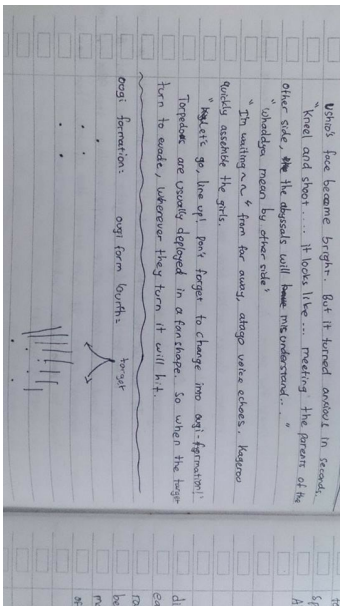 Ushio's face become bright. But it turned anxious in seconds.
"Kneel and shoot..... it looks like... meeting the parents of the
other side, the the abyssals will have misunderstand..."
"whaddya mean by other side'
"I'm waiting~~" from far away, atago voice echoes. Kagerou
quickly assemble the girls.
"Let's go, line up! Don't forget to change into ougi-formation!'
Torpedoes are usually deployed in a fan shape. So when the target
turn to evade, wherever they turn it will hit.
ougi formation: ougi form fourth: target
Sp
A
di
ea
ro
be
me
of